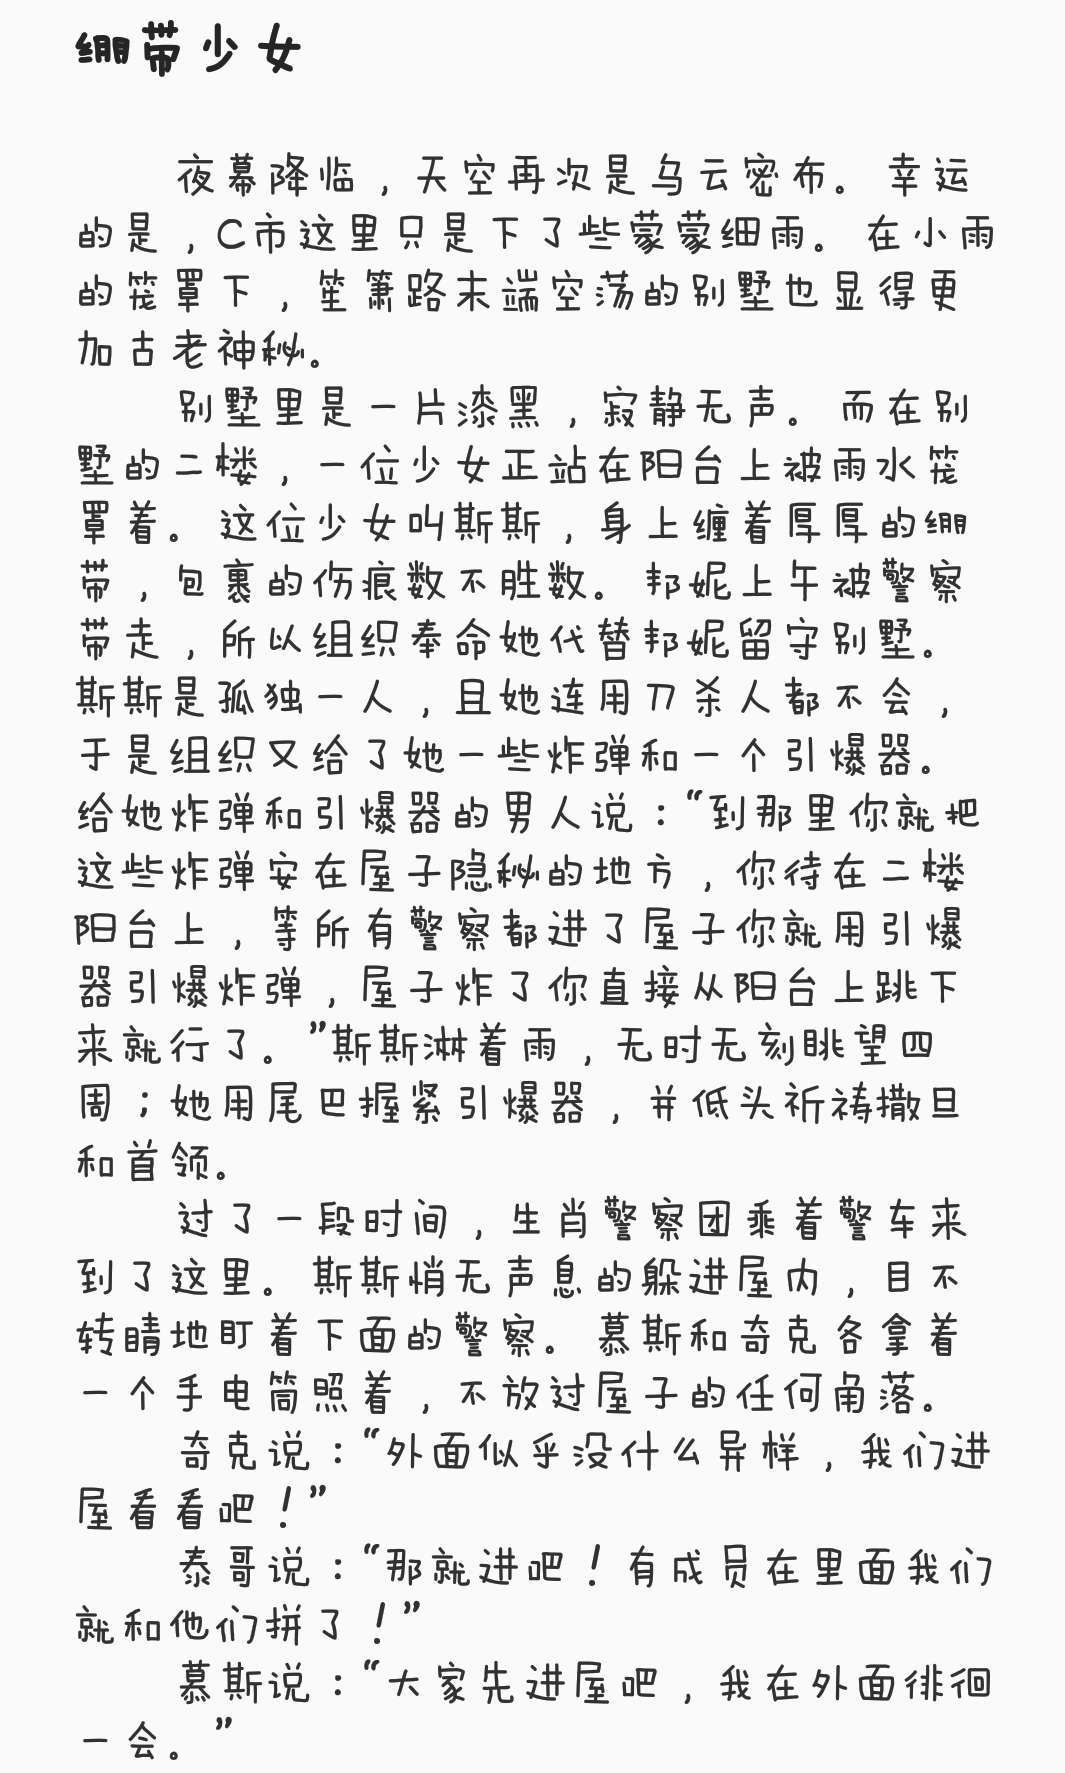 绷带少女
夜幕降临，天空再次是乌云密布。幸运
的是，C市这里只是下了些蒙蒙细雨。在小雨
的笼罩下，笙箫路末端空荡的别墅也显得更
加古老神秘。
别墅里是一片漆黑，寂静无声。而在别
墅的二楼，一位少女正站在阳台上被雨水笼
罩着。这位少女叫斯斯，身上缠着厚厚的绷
带，包裹的伤痕数不胜数。邦妮上午被警察
带走，所以组织奉命她代替邦妮留守别墅。
斯斯是孤独一人，且她连用刀杀人都不会，
于是组织又给了她一些炸弹和一个引爆器。
给她炸弹和引爆器的男人说：“到那里你就把
这些炸弹安在屋子隐秘的地方，你待在二楼
阳台上，等所有警察都进了屋子你就用引爆
器引爆炸弹，屋子炸了你直接从阳台上跳下
来就行了。”斯斯淋着雨，无时无刻眺望四
周；她用尾巴握紧引爆器，并低头祈祷撒旦
和首领。
过了一段时间，生肖警察团乘着警车来
到了这里。斯斯悄无声息的躲进屋内，目不
转睛地盯着下面的警察。慕斯和奇克各拿着
一个手电筒照着，不放过屋子的任何角落。
奇克说：“外面似乎没什么异样，我们进
屋看看吧！”
泰哥说：“那就进吧！有成员在里面我们
就和他们拼了！”
慕斯说：“大家先进屋吧，我在外面徘徊
一会。”